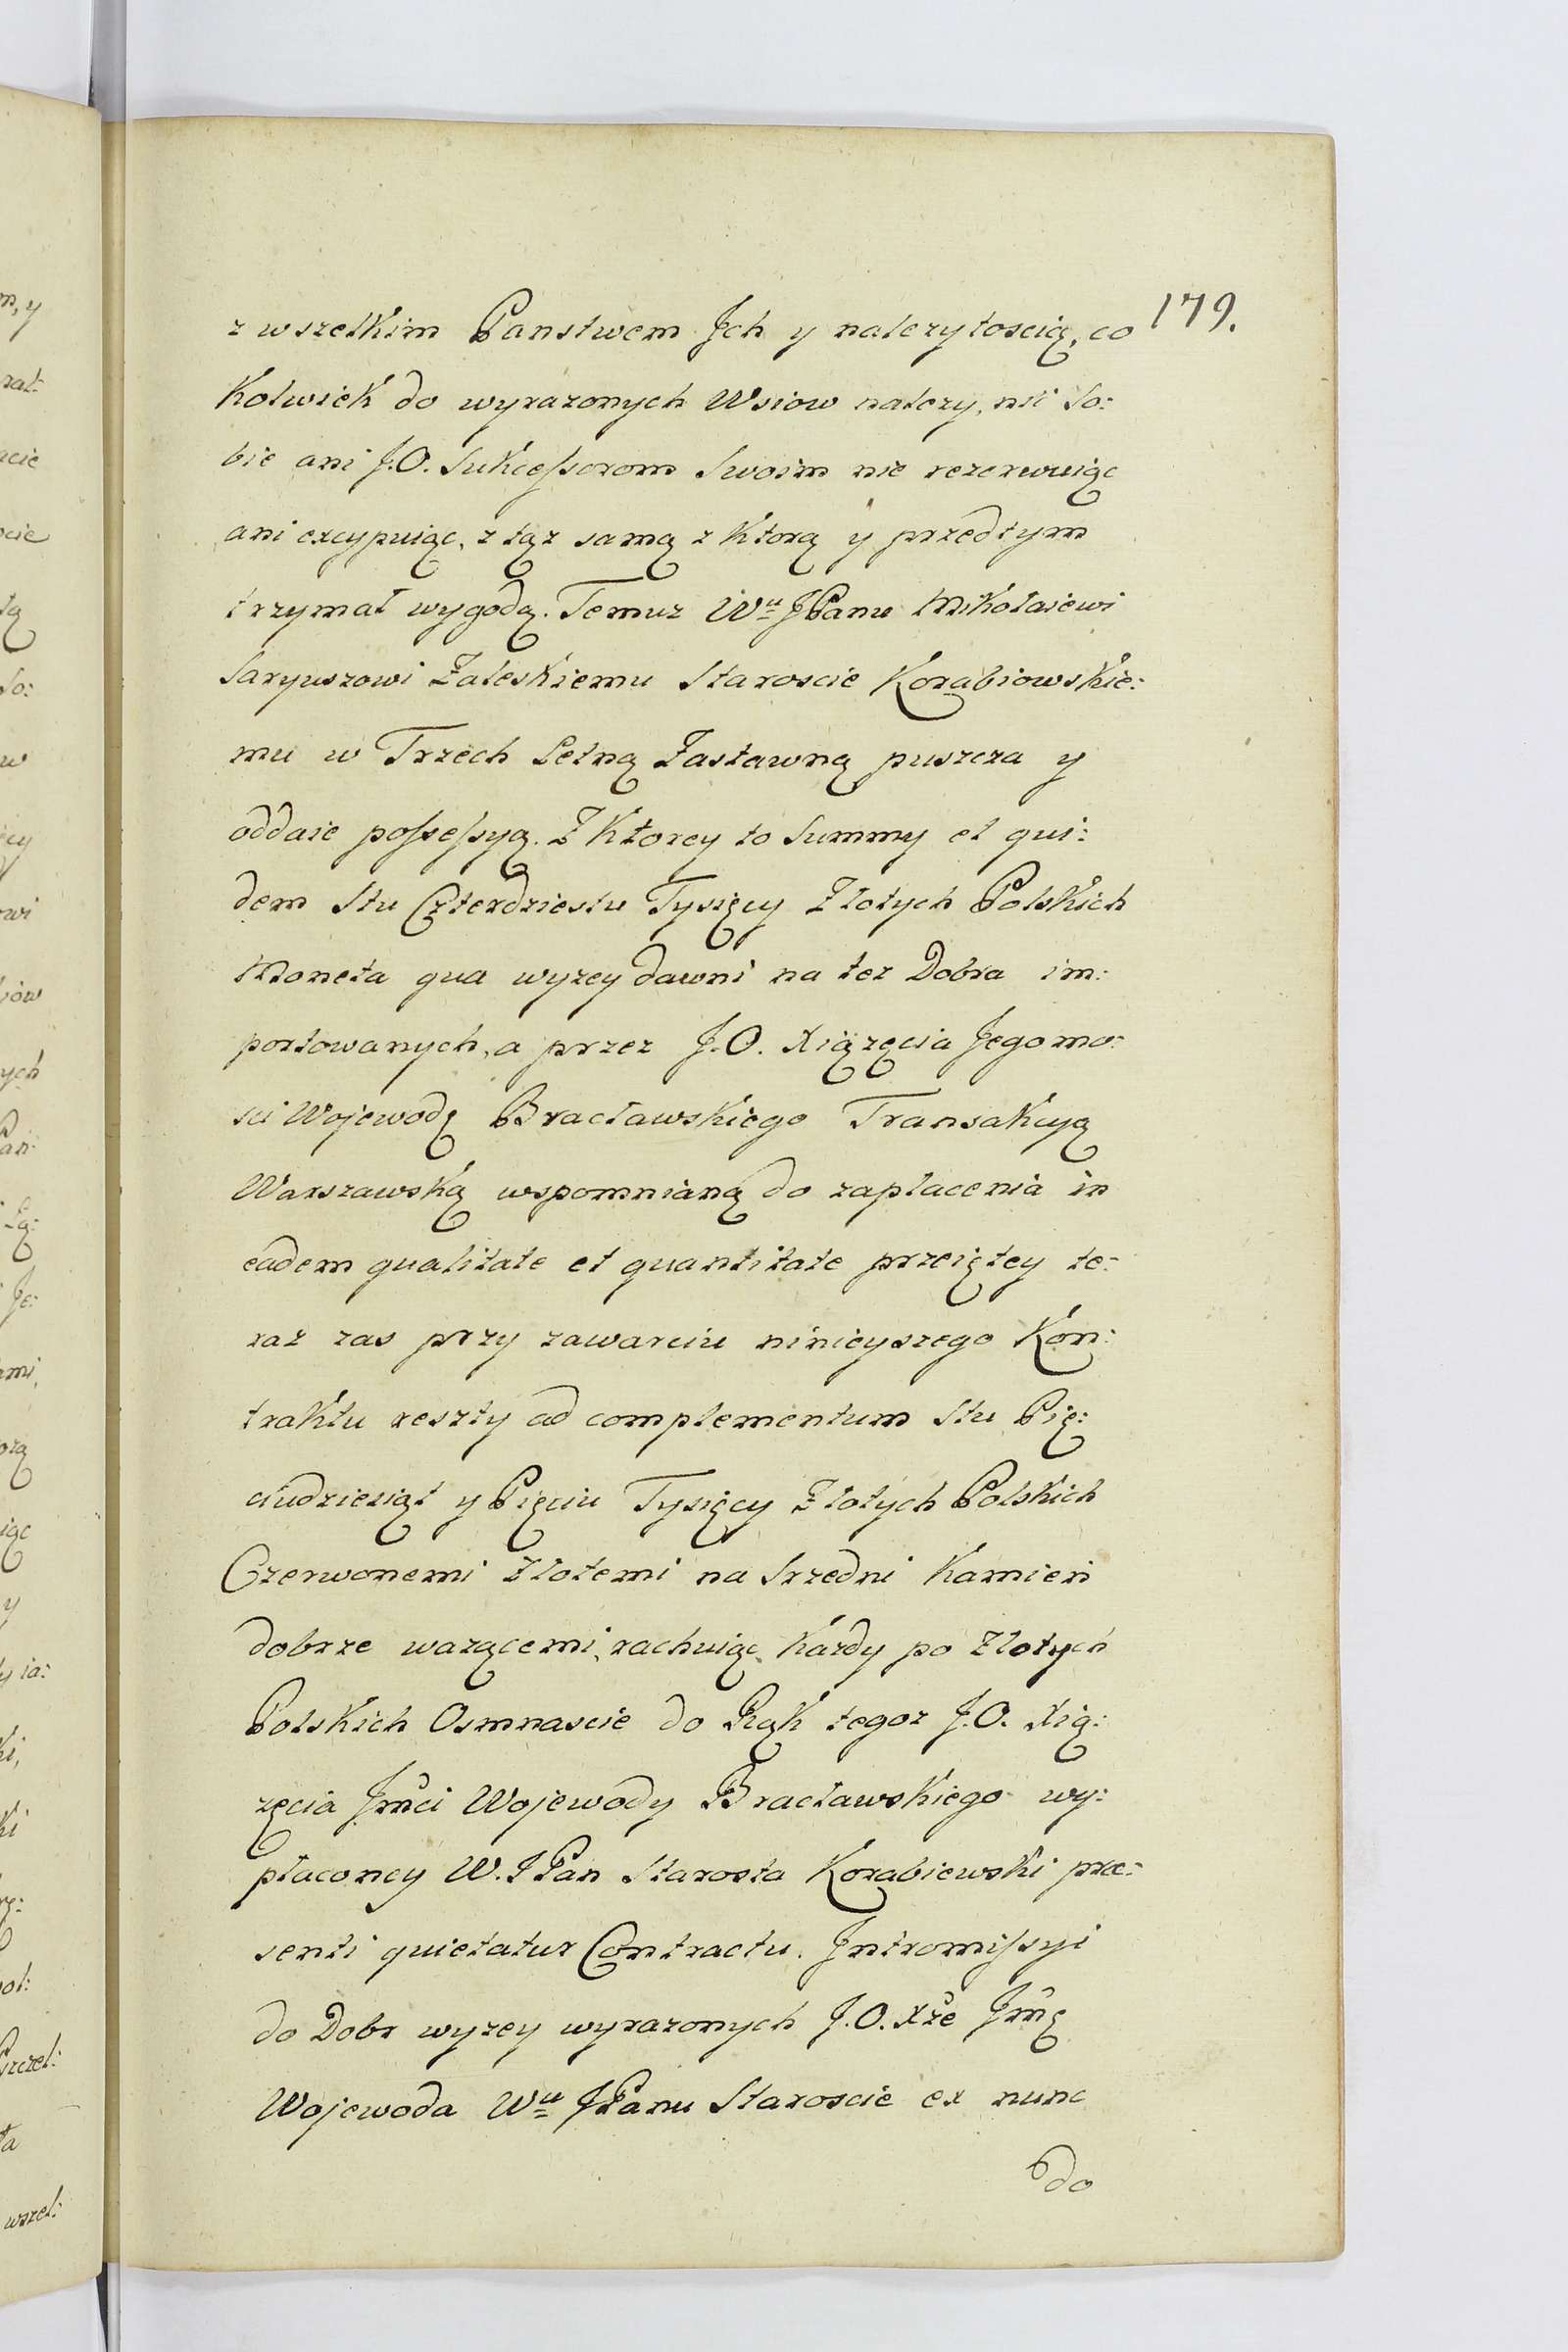 179.
z wszelkim Panstwem Jch y nalezytoscią, co
Kolwiek do wyrazonych Wsiow nalezy, nic So:
bie ani J.O. Sukceſsorom Swoim nie rezerwuiąc
ani excypuiąc, z tąż samą z Ktorą y przedtym
trzymał wygodą. Temuz Wu JPanu Mikołaiewi
Saryuszowi Zaleskiemu Staroscie Korabiowskie:
mu w Trzech Letną Zastawną puszcza y
oddaie poſseſsyą. Z Ktorey to Summy et qui:
dem Stu Czterdziestu Tysięcy Złotych Polskich
Moneta qua wyzey dawni na tez Dobra im:
portowanych, a przez J.O. Xiążęcia Jegomo:
sci Wojewodę Bracławskiego Transakcyą
Warszawską wspomnianą do zapłacenia in
eadem qualitate et quantitate przeiętey te:
raz zas przy zawarciu ninieyszego Kon:
traktu reszty ad complementum Stu Pię:
ciudziesiąt y Pięciu Tysięcy Złotych Polskich
Czerwonemi Złotemi na Srzedni Kamień
dobrze ważącemi, rachuiąc Każdy po Złotych
Polskich Osmnascie do Rąk tegoz J.O. Xią:
żęcia Jmci Wojewody Bracławskiego wy:
płaconey W. JPan Starosta Korabiewski præ:
senti quietatur Contractu. Jntromiſsyi
do Dobr wyzey wyrazonych J.O. Xże Jmę
Wojewoda Wu JPanu Staroscie ex nunc
do